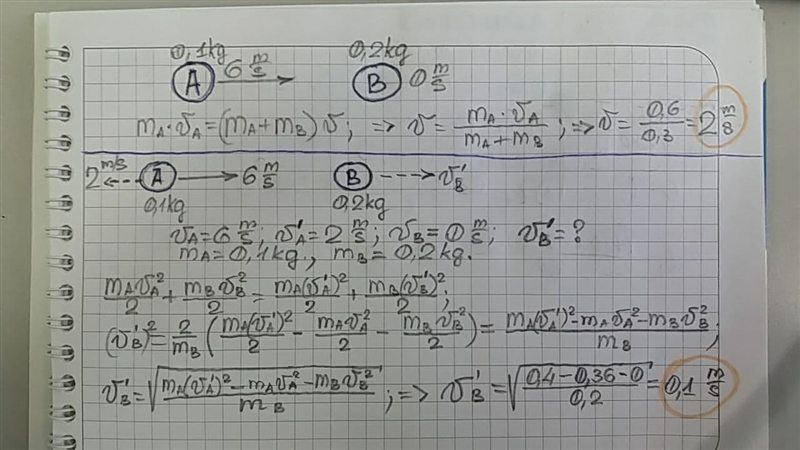 0,1kg 0,2kg
A 6 m/s B 0 m/s
m_A·v_A=(m_A+m_B)v; => v= (m_A·v_A)/(m_A+m_B); => v= 0,6/0,3 = 2 m/s
2 m/s A 6 m/s B v'_B
0,1kg 0,2kg
v_A=6 m/s; v'_A=2 m/s; v_B=0 m/s; v'_B=?
m_A=0,1kg., m_B=0,2kg.
m_A v_A²/2 + m_B v_B²/2 = m_A(v'_A)²/2 + m_B(v'_B)²/2;
(v'_B)² = 2/m_B (m_A(v'_A)²/2 - m_A v_A²/2 - m_B v_B²/2) = (m_A(v'_A)²-m_A v_A²-m_B v_B²)/m_B;
v'_B = √((m_A(v'_A)²-m_A v_A²-m_B v_B²)/m_B); => v'_B = √((0,4-0,36-0)/0,2) = 0,1 m/s